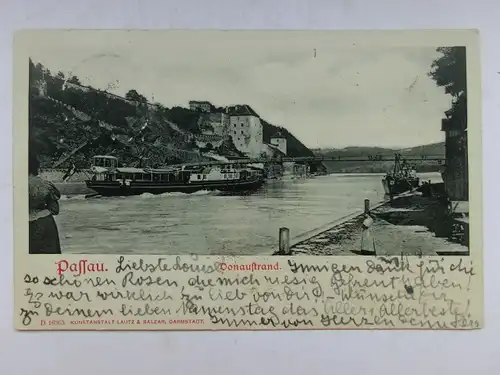 Passau. Liebste Donaustrand. Innigen Dank für die
so schönen Rosen, die mich riesig gefreut haben!
Es war wirklich zu lieb von dir! Wünsche dir
zu deinem lieben Namenstag das Aller, Allerbeste!
B 1693. KUNSTANSTALT LAUTZ & BALZAR, DARMSTADT. Immer von Herzen